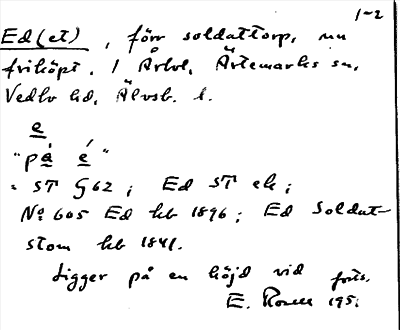 1-2
Ed(et), förr soldattorp, nu
friköpt. I Årbol, Ärtemarks sn,
Vedbo hd, Älvsb. l.
e
"på é"
= ST § 62; Ed ST ek;
No 605 Ed hb 1896; Ed Soldat-
stom hb 1841.
Ligger på en höjd vid forts.
E. 195